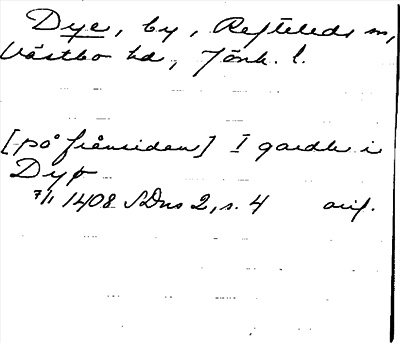 Dye, by, Refteleds sn,
Västbo hd, Jönk. l.
[på frånsidan] I gardh i
Dyþ
7/1 1408 SDns 2, s. 4 orig.